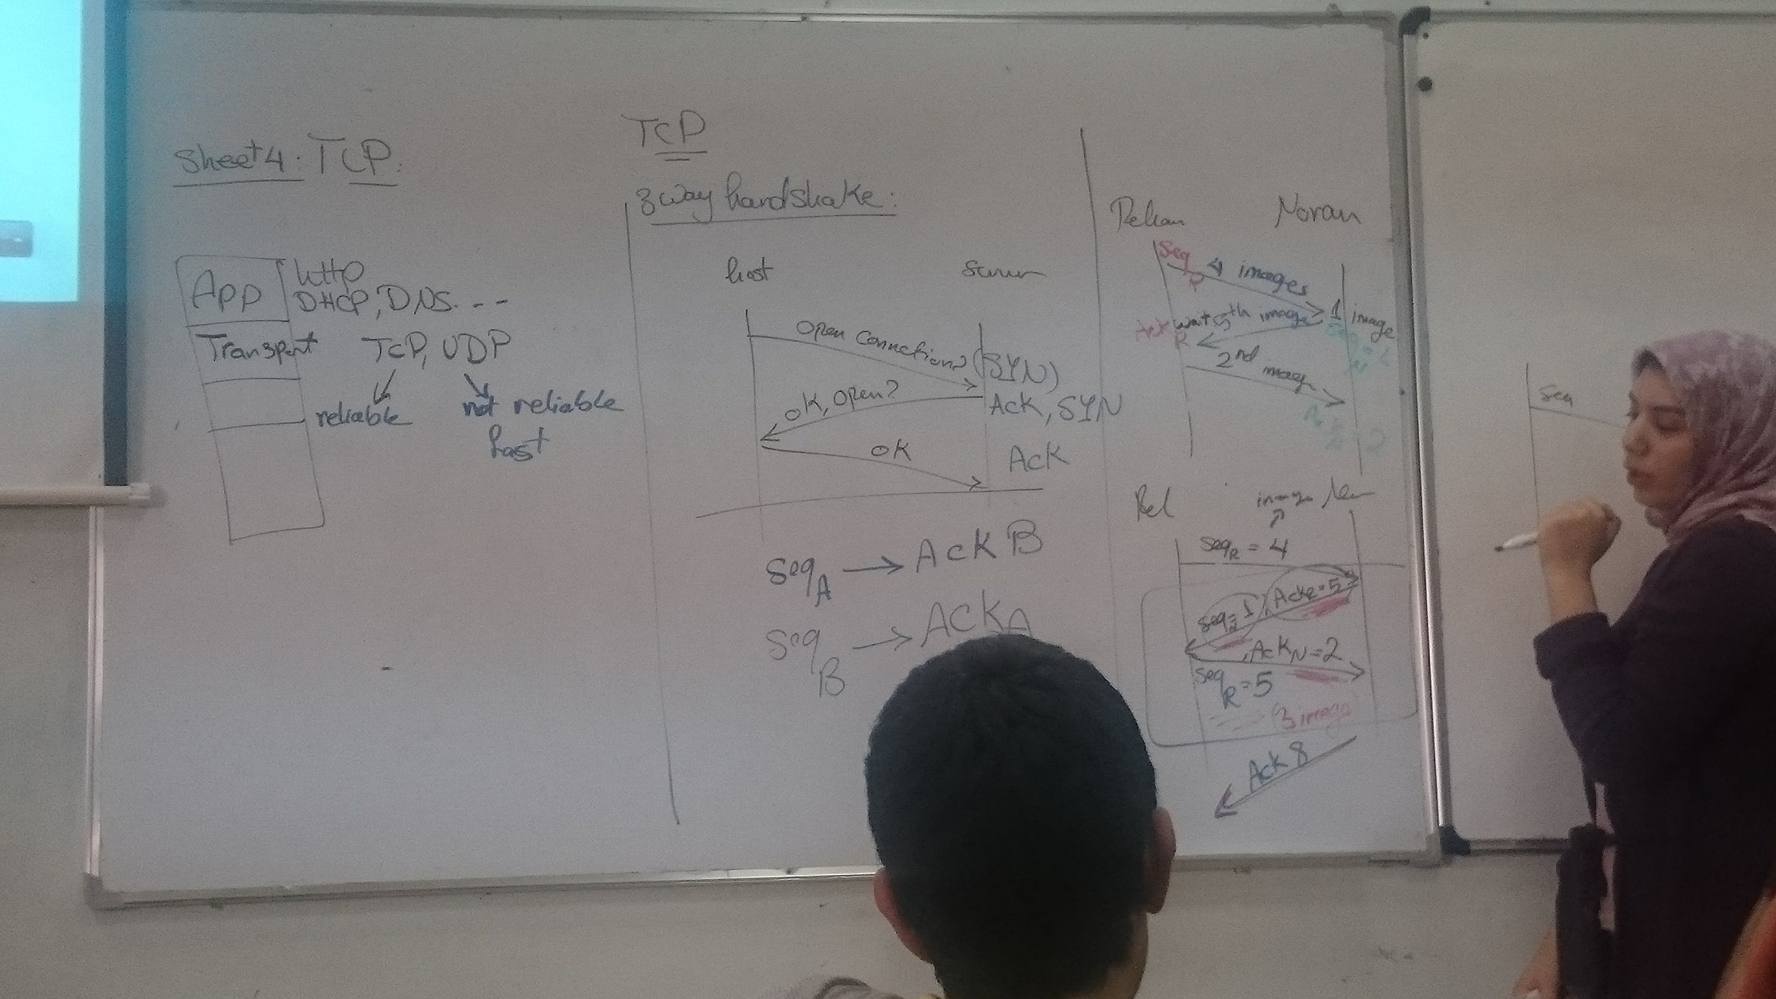 Sheet4: TCP:
App
HTTP
DHCP, DNS. ---
Transport TCP, UDP
reliable
not reliable
fast
TCP
3 way handshake:
host
open connection? (SYN)
ok, open? Ack, SYN
ok Ack
seq A → Ack B
seq B → Ack A
Noran
seq R 4 images
1 image
wait 5th image
Ack R
2nd image
image
seq R = 4
Ack R = 5
Ack N = 2
seq R = 5
3 image
Ack 8
seq